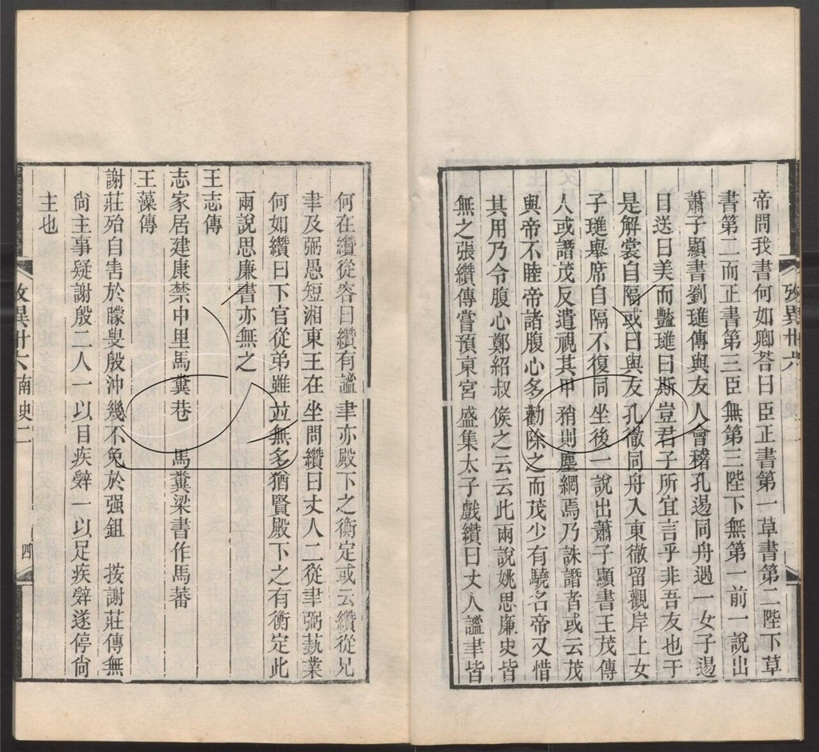 帝問我書何如卿荅曰臣正書第一草書第二陛下草
書第二而正書第三臣無第三陛下無第一前一說出
蕭子顯書劉璡傳與友人會稽孔逷同舟遇一女子逷
目送曰美而豔璡曰斯豈君子所宜言乎非吾友也于
是解裳自隔或曰與友孔徹同舟入東徹留觀岸上女
子璡舉席自隔不復同坐後一說出蕭子顯書王茂傳
人或譖茂反遣視其甲稍則塵網焉乃誅譖者或云茂
與帝不睦帝諸腹心多勸除之而茂少有驍名帝又惜
其用乃令腹心鄭紹叔俟之云云此兩說姚思廉史皆
無之張纘傳嘗預東宮盛集太子戲纘曰丈人謐聿皆
攷異卅六
何在纘從容曰纘有謐聿亦殿下之衡定或云纘從兄
聿及弼愚短湘東王在坐問纘曰丈人二從聿弼藝業
何如纘曰下官從弟雖並無多猶賢殿下之有衡定此
兩說思廉書亦無之
王志傳
志家居建康禁中里馬糞巷　馬糞梁書作馬蕃
王藻傳
謝莊殆自害於矇叟殷沖幾不免於强鉏　按謝莊傳無
尙主事疑謝殷二人一以目疾辤一以足疾辤遂停尙
主也
攷異卅六　南史二　四